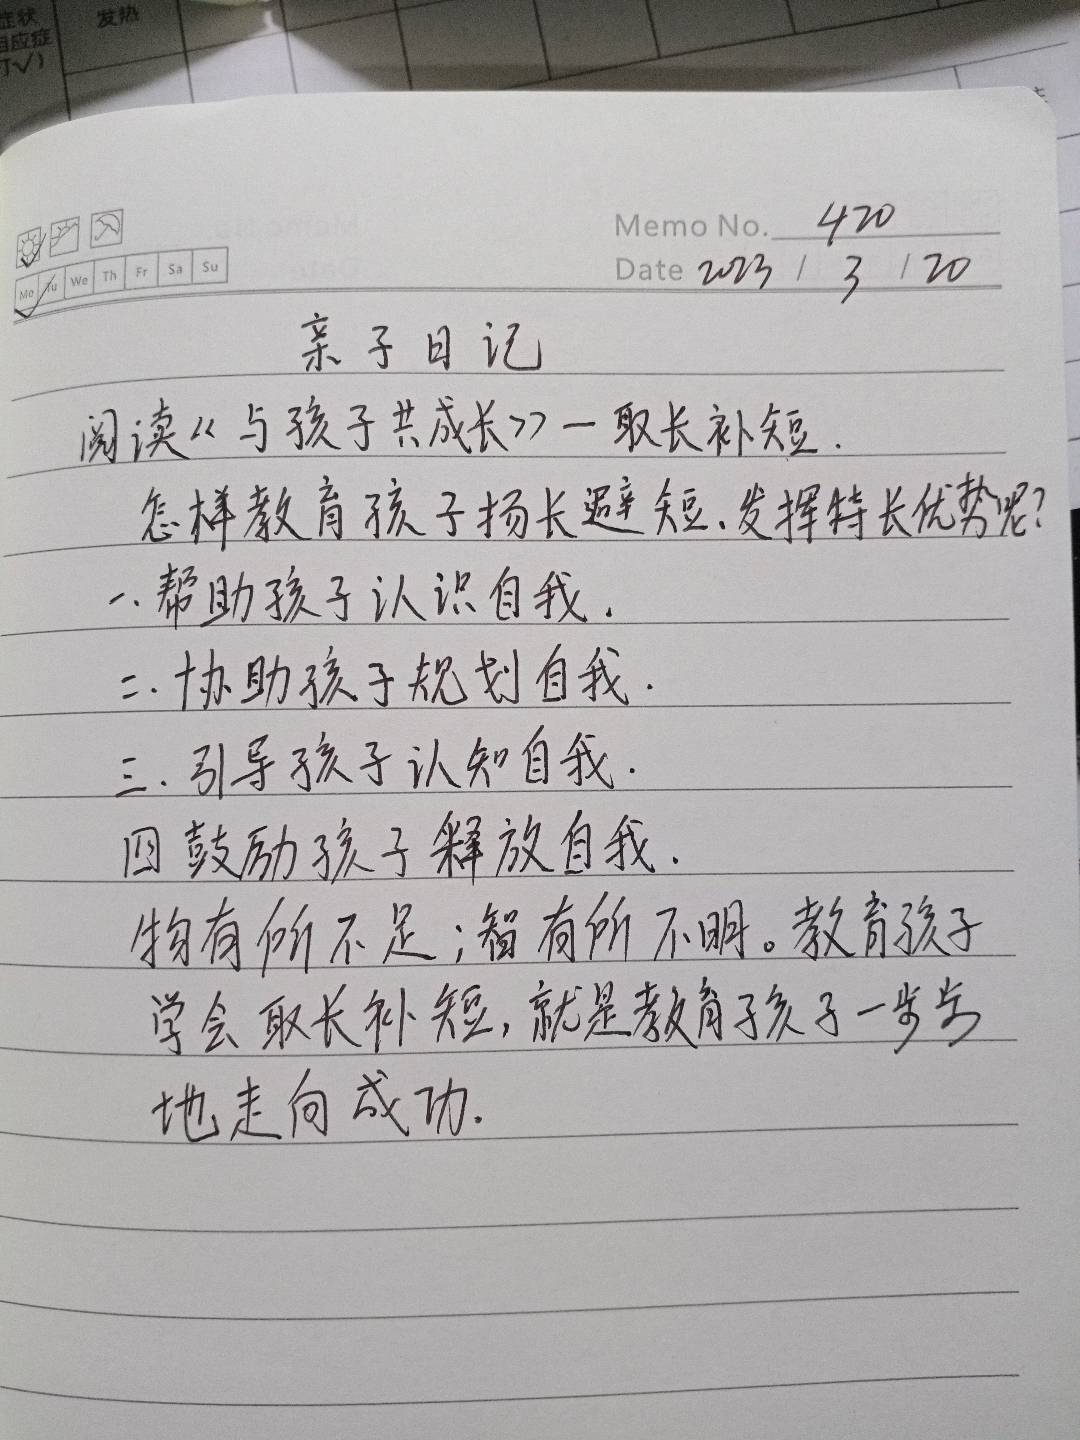 症状
发热
Memo No. 420
Mo Tu We Th Fr Sa Su
Date 2023 / 3 / 20
亲子日记
阅读《与孩子共成长》一取长补短.
怎样教育孩子扬长避短、发挥特长优势呢?
一、帮助孩子认识自我.
二.协助孩子规划自我.
三.引导孩子认知自我.
四鼓励孩子释放自我.
物有所不足;智有所不明。教育孩子
学会取长补短,就是教育孩子一步步
地走向成功.